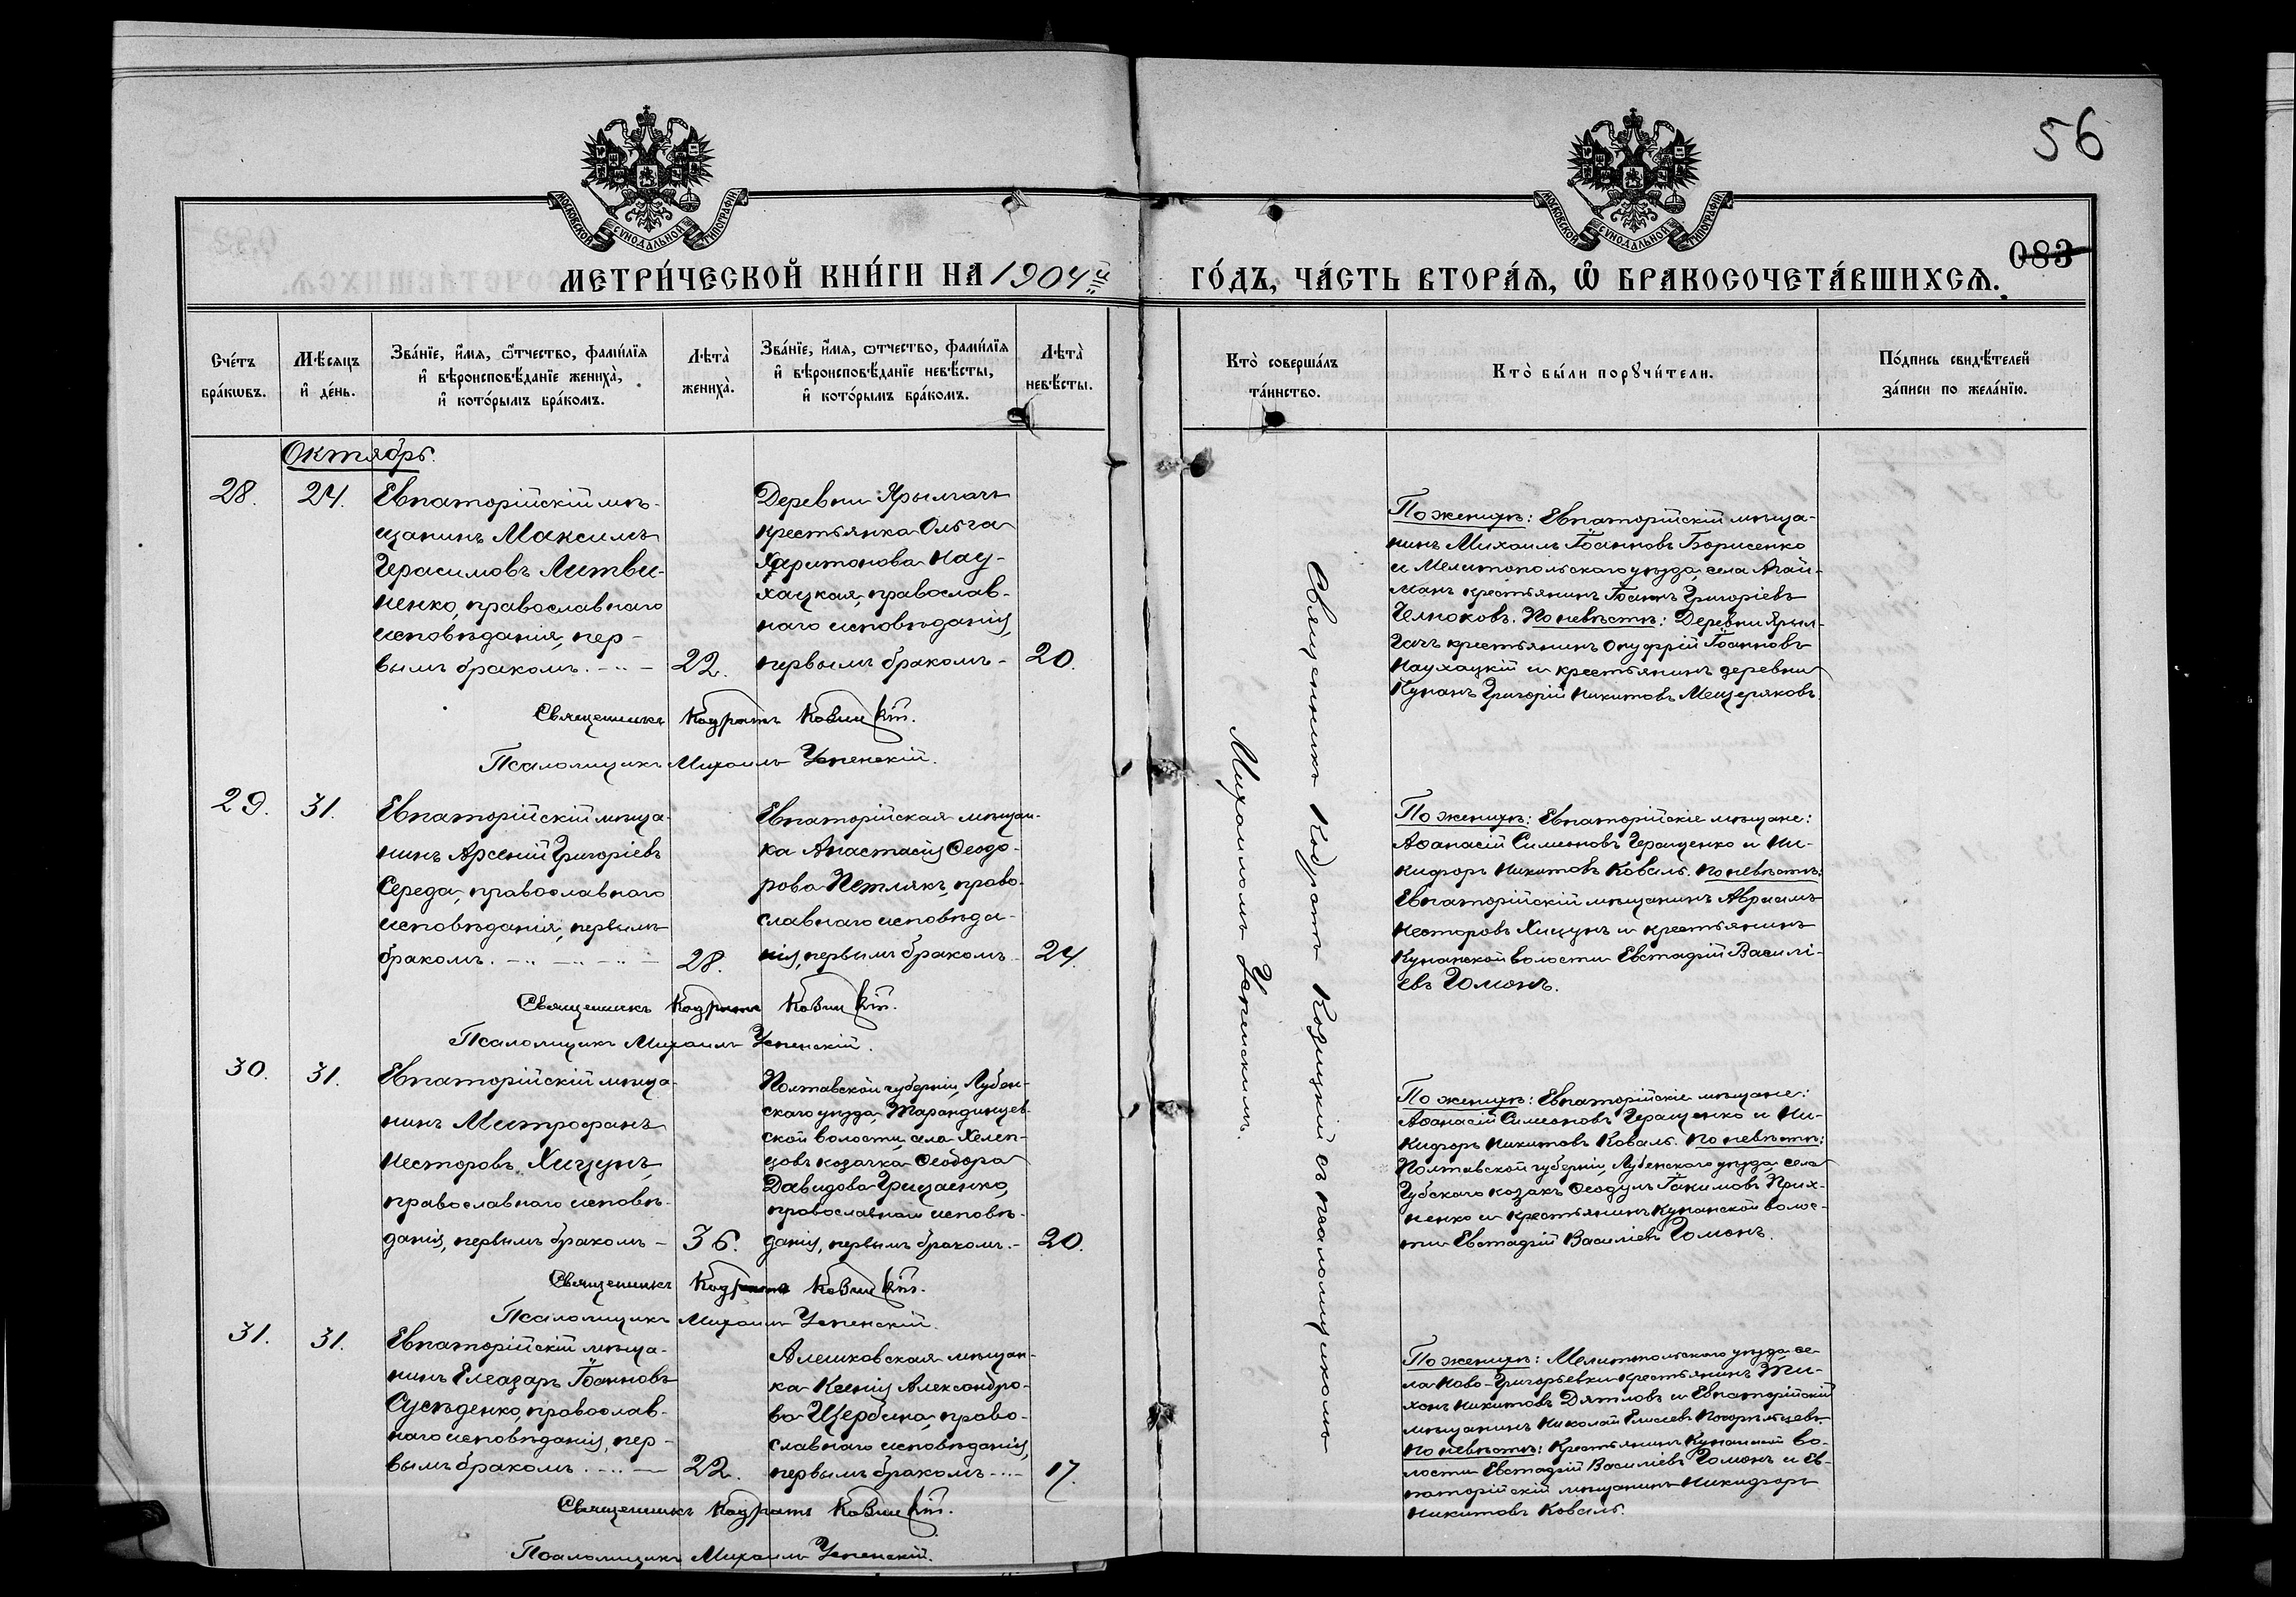 56
083
МОСКОВСКОЙ СѴНОДАЛЬНОЙ ТИПОГРАФІИ
МОСКОВСКОЙ СѴНОДАЛЬНОЙ ТИПОГРАФІИ
МЕТРИ́ЧЕСКОЙ КНИ́ГИ НА 1904ый ГО́ДЪ, ЧА́СТЬ ВТОРА́Ѧ, Ѽ БРАКОСОЧЕТА́ВШИХСѦ.
Сче́тъ бра́кѡвъ.
Мѣ́сяцъ и҆ де́нь.
Зва́нїе, и҆́мѧ, ѻ҆́тчество, фами́лїѧ
и҆ вѣроисповѣ́данїе жениха̀,
и҆ кото́рымъ бра́комъ.
Лѣта̀ жениха̀.
Зва́нїе, и҆́мѧ, ѻ҆́тчество, фами́лїѧ
и҆ вѣроисповѣ́данїе невѣ́сты,
и҆ кото́рымъ бра́комъ.
Лѣта̀ невѣ́сты.
Кто̀ соверша́лъ та́инство.
Кто̀ бы́ли порꙋчи́тели.
По́дпись свидѣ́телей
за́писи по жела́нїю.
Октябрь.
28.
24.
Евпаторійскій мѣ-
щанинъ Максимъ
Герасимовъ Литви-
ненко, православнаго
исповѣданія, пер-
вымъ бракомъ.
22.
Деревни Ярылгачъ
крестьянка Ольга
Харитонова Нау-
хацкая, православ-
наго исповѣданія,
первымъ бракомъ -
20.
По женихѣ: Евпаторійскій мѣща-
нинъ Михаилъ Іоанновъ Борисенко
и Мелитопольскаго уѣзда, села Агай-
манъ крестьянинъ Іоаннъ Григоріевъ
Челноковъ. По невѣстѣ: Деревни Ярыл-
гачъ крестьянинъ Онуфрій Іоанновъ
Наухацкій и крестьянинъ деревни
Кунанъ Григорій Никитовъ Мещеряковъ.
Священникъ Кодратъ
Псаломщикъ Михаилъ Успенскій.
29.
31.
Евпаторійскій мѣща-
нинъ Арсеній Григоріевъ
Середа, православнаго
исповѣданія, первымъ
бракомъ.
28.
Евпаторійская мѣщан-
ка Анастасія Ѳеодо-
рова Петлякъ, право-
славнаго исповѣда-
нія, первымъ бракомъ -
24.
По женихѣ: Евпаторійскіе мѣщане:
Аѳанасій Симеоновъ Геращенко и Ни-
кифоръ Никитовъ Коваль. По невѣстѣ:
Евпаторійскій мѣщанинъ Авраамъ
Несторовъ Хицунъ и крестьянинъ
Кунанской волости Евстафій Василі-
евъ Гомонъ.
Священникъ Кодратъ
Псаломщикъ Михаилъ Успенскій.
30.
31.
Евпаторійскій мѣща-
нинъ Митрофанъ
Несторовъ Хицунъ,
православнаго исповѣ-
данія, первымъ бракомъ -
36.
Полтавской губерніи, Лубен-
скаго уѣзда, Тарандинцев-
ской волости, села Хелеп-
цовъ козачка Ѳеодора
Давидова Грицаенко,
православнаго исповѣ-
данія, первымъ бракомъ. -
20.
По женихѣ: Евпаторійскіе мѣщане:
Аѳанасій Симеоновъ Геращенко и Ни-
кифоръ Никитовъ Коваль. По невѣстѣ:
Полтавской губерніи, Лубенскаго уѣзда, села
Губскаго козакъ Ѳеодулъ Іакимовъ
и крестьянинъ Кунанской волос-
ти Евстафій Василіевъ Гомонъ.
Священникъ Кодратъ
Псаломщикъ Михаилъ Успенскій.
31.
31.
Евпаторійскій мѣща-
нинъ Елеазаръ Іоанновъ
православ-
наго исповѣданія, пер-
вымъ бракомъ.
22.
Алешковская мѣщан-
ка Ксенія Александро-
ва Щербина, право-
славнаго исповѣданія,
первымъ бракомъ -
17.
По женихѣ: Мелитопольскаго уѣзда, се-
ла Ново-Григорьевки крестьянинъ Ти-
хонъ Никитовъ Дятловъ и Евпаторійскій
мѣщанинъ Николай Елисеевъ Погорѣльцевъ
По невѣстѣ: Крестьянинъ Кунанской во-
лости Евстафій Василіевъ Гомонъ и Ев-
паторійскій мѣщанинъ Никифоръ
Никитовъ Коваль.
Священникъ Кодратъ
Псаломщикъ Михаилъ Успенскій.
Священникъ Кодратъ Козицкій съ псаломщикомъ
Михаиломъ Успенскимъ.